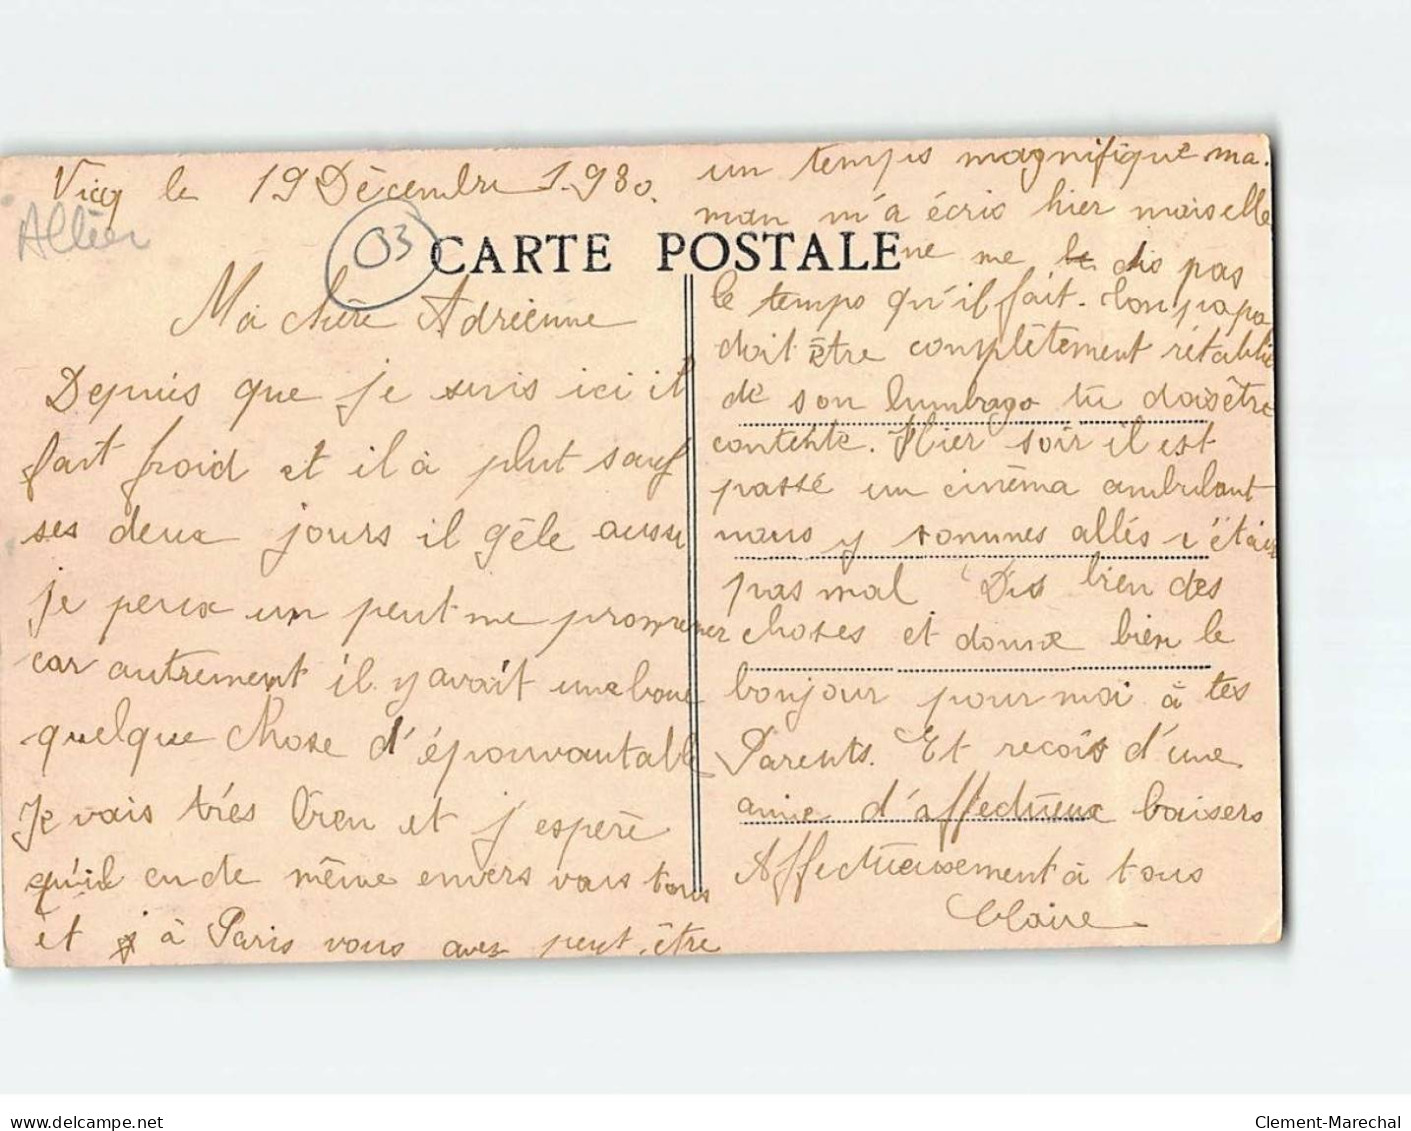 Vicq le 19 Décembre 1.930.
Allier
03
CARTE POSTALE
Ma chère Adrienne
Depuis que je suis ici il
fait froid et il à plut sauf
ses deux jours il gèle aussi
je peux un peut me promener
car autrement il y avait une boue
quelque chose d'épouvantable
Je vais très bien et j'espère
qu'il en de même envers vous tous
et à Paris vous avez peut-être
un temps magnifique ma.
man m'a écris hier mais elle
ne me dis pas
le temps qu'il fait. Ton papa
doit être complètement rétablie
de son lumbago tu dois être
contente. Hier soir il est
passé un cinéma ambulant
nous y sommes allés c'était
pas mal Dis bien des
choses et donne bien le
bonjour pour moi à tes
Parents. Et recois d'une
amie d'affectueux baisers
Affectueusement à tous
Claire
www.delcampe.net
Clement-Marechal